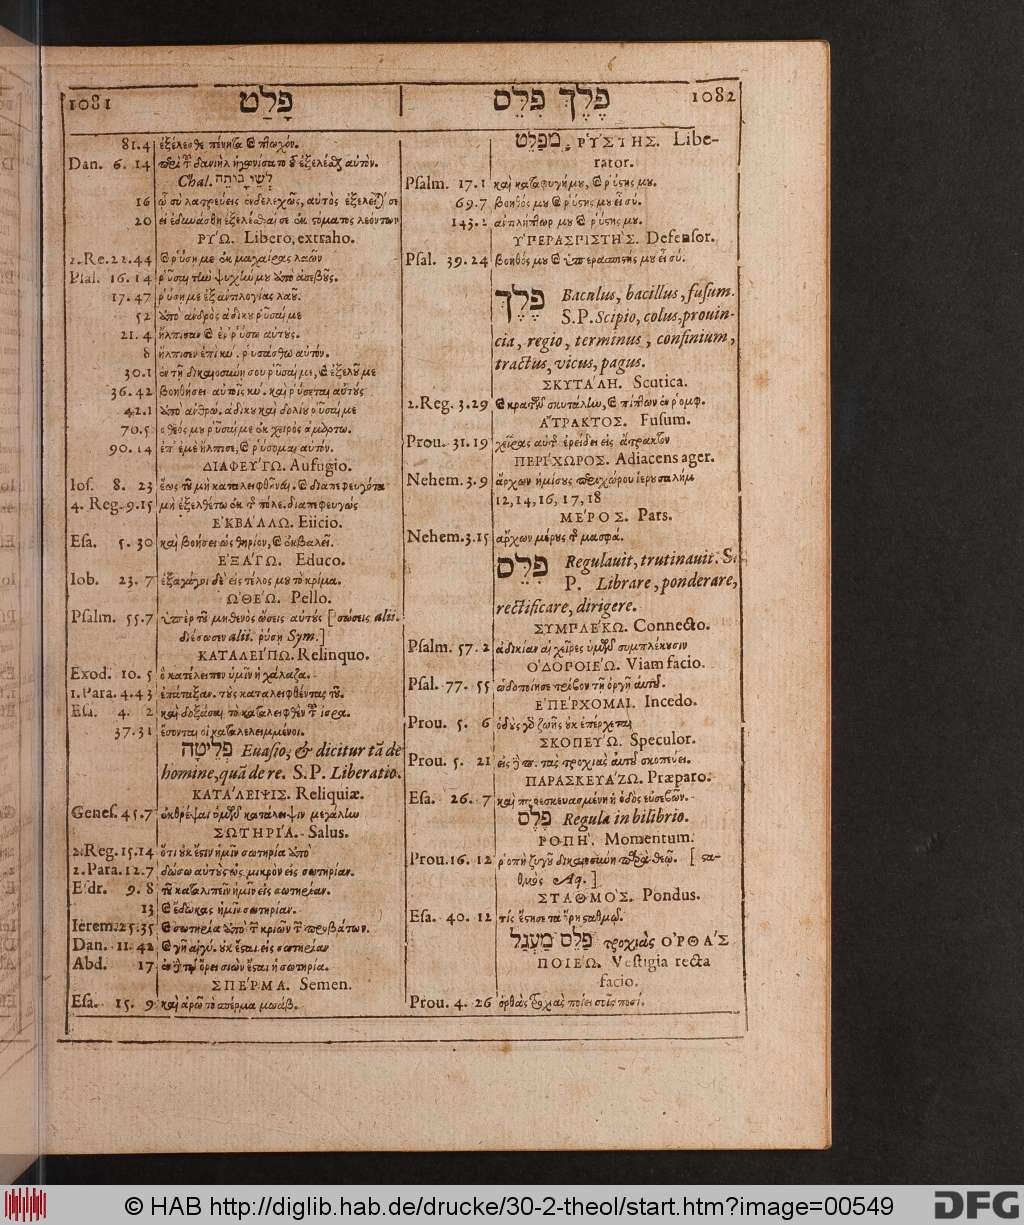 1081 פָּלַט
פֶּלֶךְ פִּלֵּס 1082
81.4 ἐξέλεσθε πένητα
Dan. 6. 14
Chal.
16 ὁ σὺ λατρεύεις ἐνδελεχῶς, αὐτὸς ἐξελεῖταί σε
20 στόματος λεόντων
ΡΥΩ. Libero, extraho.
2.Re.22.44 ῥύσῃ με ἐκ μαχαίρας λαῶν
Psal. 16.14 ῥῦσαι ψυχήν μου ἀπὸ ἀσεβοῦς.
17.47 ῥύσῃ με ἐξ ἀντιλογίας λαοῦ.
52 ἀπὸ ἀνδρὸς ἀδίκου ῥῦσαί με
21.4 ἤλπισαν αὐτούς.
8 ἤλπισεν ἐπὶ κύ. ῥυσάσθω αὐτόν.
30.1 ἐν τῇ δικαιοσύνῃ σου ῥῦσαί με, ἐξελοῦ με
36.42 βοηθήσει αὐτοῖς κύ. καὶ ῥύσεται αὐτούς
42.1 ἀδίκου καὶ δολίου ῥῦσαί με
70.5 ὁ θεός μου ῥῦσαί με ἐκ χειρὸς
90.14 ἐπ' ἐμὲ ἤλπισε, ῥύσομαι αὐτόν.
ΔΙΑΦΕΥΓΩ. Aufugio.
Ios. 8. 23 ἕως τοῦ μὴ καταλειφθῆναι
4. Reg. 9.15 μὴ ἐξελθέτω ἐκ διαπεφευγώς
ΕΚΒΑΛΛΩ. Eiicio.
Esa. 5. 30 καὶ βοήσει ὡς θηρίον, ἐκβαλεῖ.
ΕΞΑΓΩ. Educo.
Iob. 23. 7 εἰς τέλος μου τὸ κρίμα.
ΩΘΕΩ. Pello.
Psalm. 55.7 ὑπὲρ τοῦ μηθενὸς ὤσεις αὐτούς [σώσεις alii.
διέσωσεν alii. ῥύσῃ Sym.]
ΚΑΤΑΛΕΙΠΩ. Relinquo.
Exod. 10. 5 ὃ κατέλειπεν ὑμῖν ἡ χάλαζα.
1.Para. 4.43 ἐπάταξαν τοὺς καταλειφθέντας
Esa. 4. 2 καὶ δοξάσαι τὸ καταλειφθὲν
37.31 ἔσονται οἱ καταλελειμμένοι.
פְּלֵיטָה Euasio, & dicitur tã de
homine, quã de re. S.P. Liberatio.
ΚΑΤΑΛΕΙΨΙΣ. Reliquiæ.
Genes. 45.7 κατάλειψιν μεγάλην
ΣΩΤΗΡΙΑ. Salus.
2.Reg.15.14 ὅτι οὐκ ἔστιν ἡμῖν σωτηρία ἀπὸ
2.Para.12.7 δώσω αὐτοὺς ὡς μικρὸν εἰς σωτηρίαν.
Esdr. 9. 8 τοῦ καταλιπεῖν ἡμῖν εἰς σωτηρίαν.
13 ἔδωκας ἡμῖν σωτηρίαν.
Ierem.25.35 σωτηρία ἀπὸ κριῶν προβάτων.
Dan. 11. 42 οὐκ ἔσται εἰς σωτηρίαν
Abd. 17 ὄρει σιὼν ἔσται ἡ σωτηρία.
ΣΠΕΡΜΑ. Semen.
Esa. 15. 9 καὶ ἀρῶ τὸ σπέρμα μωάβ.
מְפַלֵּט. ΡΥΣΤΗΣ. Libe-
rator.
Psalm. 17.1 καὶ καταφυγή μου, ῥύστης μου.
69.7 βοηθός μου ῥύστης μου εἶ σύ.
143.2 ἀντιλήπτωρ μου ῥύστης μου.
ΥΠΕΡΑΣΠΙΣΤΗΣ. Defensor.
Psal. 39.24 βοηθός μου ὑπερασπιστής μου εἶ σύ.
פֶּלֶךְ Baculus, bacillus, fusum.
S.P. Scipio, colus, prouin-
cia, regio, terminus, confinium,
tractus, vicus, pagus.
ΣΚΥΤΑΛΗ. Scutica.
2.Reg. 3.29 κρατῶν σκυτάλης, πίπτων ἐν ῥομφ.
ΑΤΡΑΚΤΟΣ. Fusum.
Prou. 31.19 χεῖρας αὐτῆς ἐρείδει εἰς ἄτρακτον
ΠΕΡΙΧΩΡΟΣ. Adiacens ager.
Nehem. 3.9 ἄρχων ἡμίσους περιχώρου ἱερουσαλήμ
12, 14, 16, 17, 18
ΜΕΡΟΣ. Pars.
Nehem.3.15 ἄρχων μέρους τοῦ μασφά.
פִּלֵּס Regulauit, trutinauit. S.
P. Librare, ponderare,
rectificare, dirigere.
ΣΥΜΠΛΕΚΩ. Connecto.
Psalm. 57. 2 ἀδικίαν αἱ χεῖρες ὑμῶν συμπλέκουσιν
ΟΔΟΠΟΙΕΩ. Viam facio.
Psal. 77. 55 ὡδοποίησε τρίβον τῇ ὀργῇ αὐτοῦ.
ΕΠΕΡΧΟΜΑΙ. Incedo.
Prou. 5. 6 ὁδοὺς ζωῆς οὐκ ἐπέρχεται
ΣΚΟΠΕΥΩ. Speculor.
Prou. 5. 21 τὰς τροχιὰς αὐτοῦ σκοπεύει.
ΠΑΡΑΣΚΕΥΑΖΩ. Præparo.
Esa. 26. 7 καὶ παρεσκευασμένη ἡ ὁδὸς εὐσεβῶν.
פֶּלֶס Regula in bilibrio.
ΡΟΠΗ. Momentum.
Prou.16. 12 ῥοπὴ ζυγοῦ δικαιοσύνη παρὰ θεῷ. [στα-
θμός Aq.]
ΣΤΑΘΜΟΣ. Pondus.
Esa. 40. 12 τίς ἔστησε τὰ ὄρη σταθμῷ.
פַּלֵּס מַעְגַּל τροχιὰς ΟΡΘΑΣ
ΠΟΙΕΩ. Vestigia recta
facio.
Prou. 4. 26 ὀρθὰς τροχιὰς ποίει σοῖς ποσί.
© HAB http://diglib.hab.de/drucke/30-2-theol/start.htm?image=00549
DFG